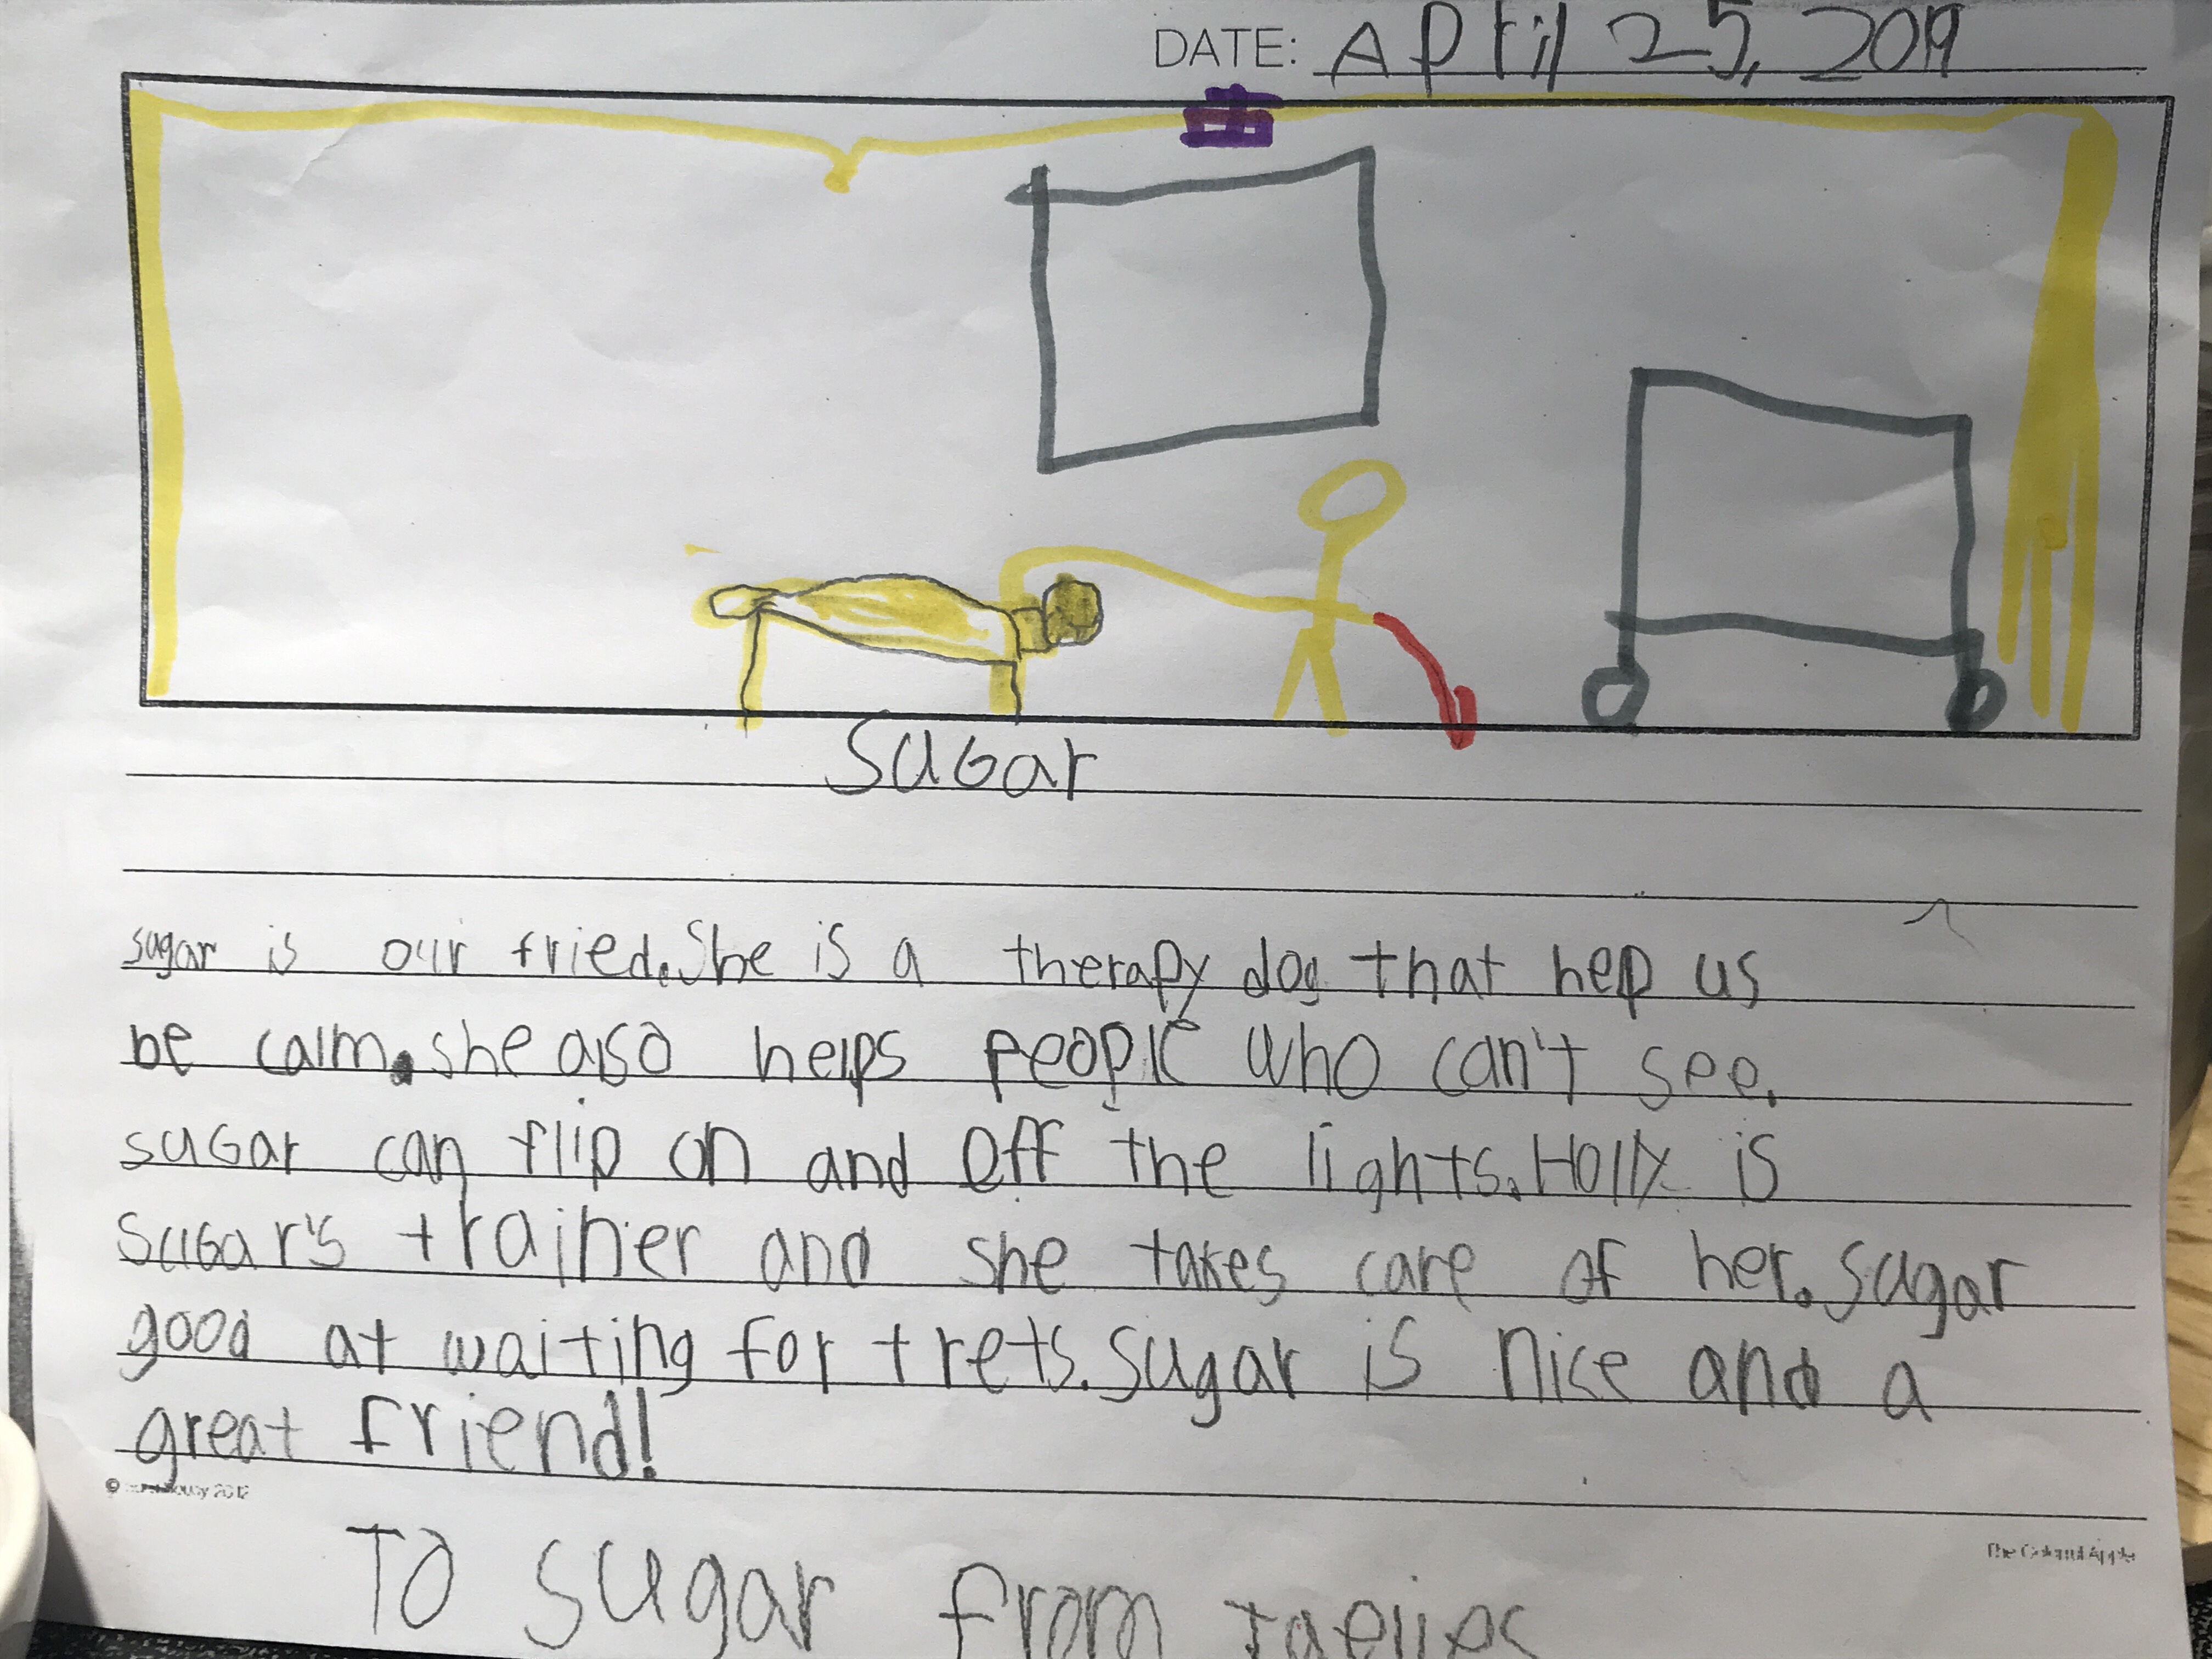 DATE: April 25, 2019
SuGar
sugar is our fried. She is a therapy dog that hep us
be calm. she also helps people who can't see.
suGar can flip on and off the lights. Holly is
SuGar's trainer and she takes care of her. Sugar
good at waiting for trets. Sugar is nice and a
great friend!
© 2012
The Colorful Apple
To Sugar from